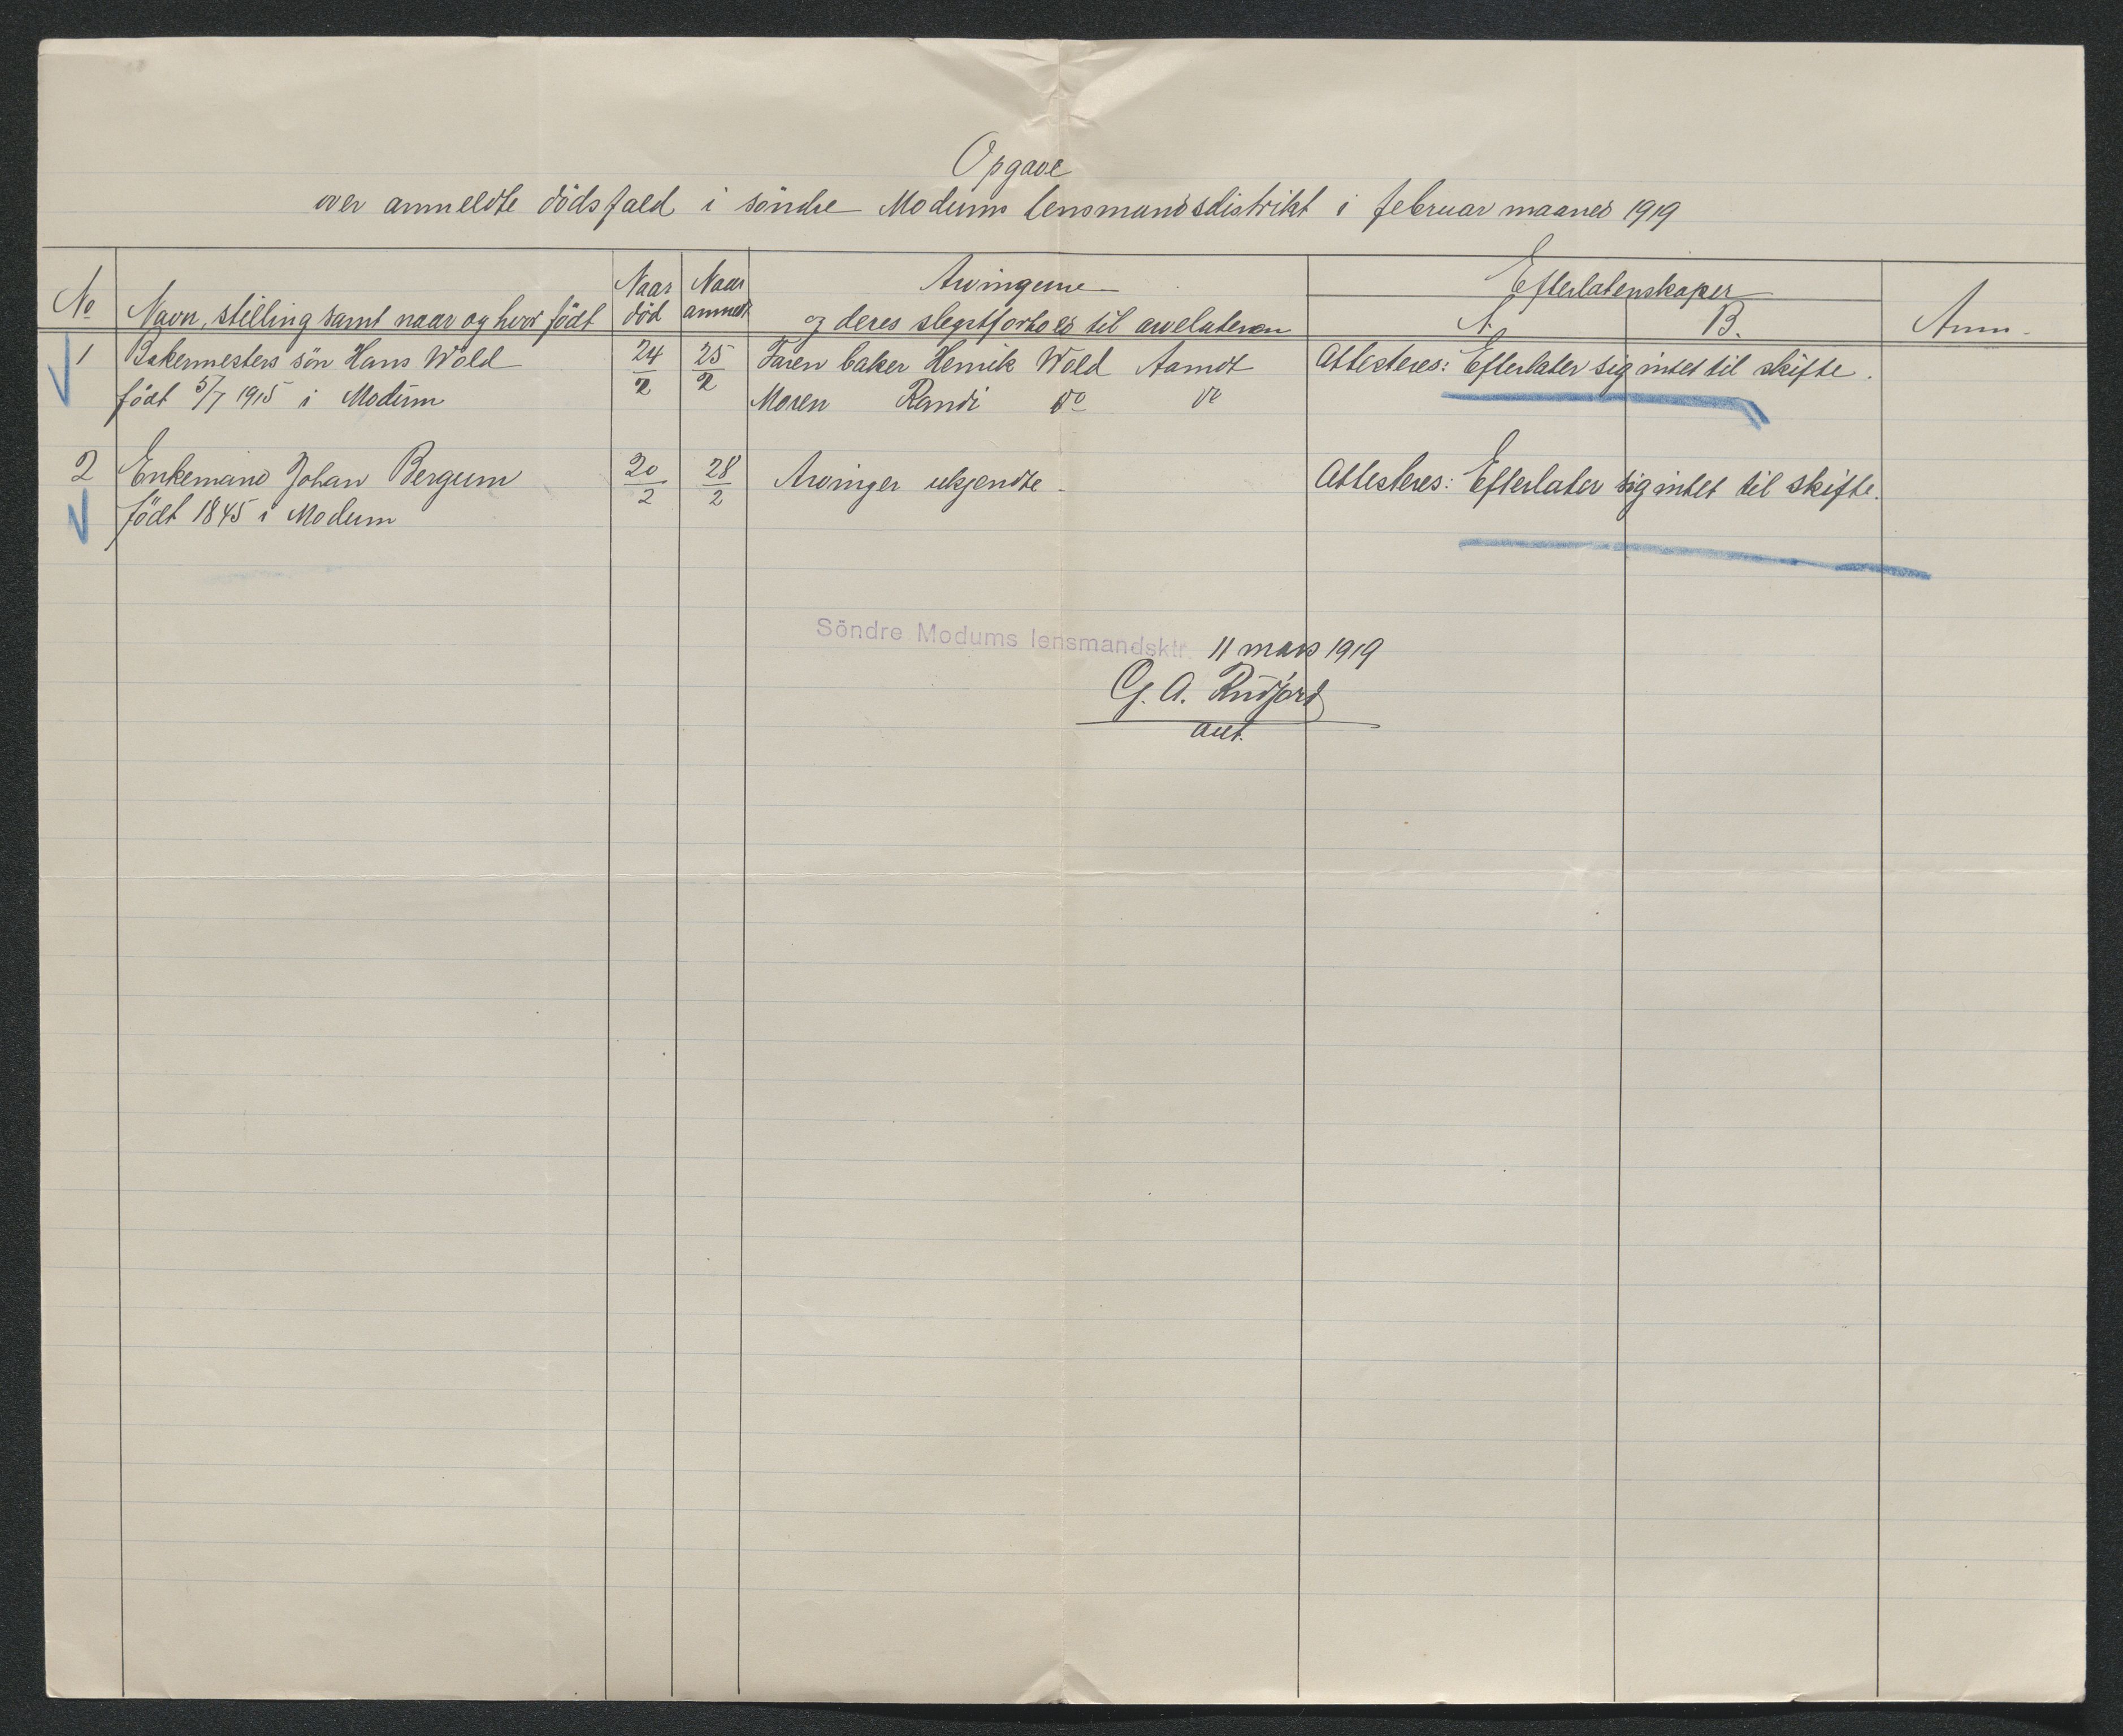 Opgave
over anmeldte dödsfald i söndre Modums lensmandsdistrikt i februar maaned 1919
No
Navn, stilling samt naar og hvor födt
Naar död
Naar anmeldt
Arvingerne
og deres slegtsforhold til arvelateren
Efterlatenskaper
A.
B.
Anm.
1 Bakermesters sön Hans Wold 24/2 25/2 Faren baker Henrik Wold Aamot Attesteres: Efterlater sig intet til skifte.
födt 5/7 1915 i Modum Moren Randi do do
2 Enkemand Johan Bergum 20/2 28/2 Arvinger ukjendte. Attesteres: Efterlater sig intet til skifte.
födt 1845 i Modum
Söndre Modums lensmandsktr. 11 mars 1919
G. A. Rudjord
aut.